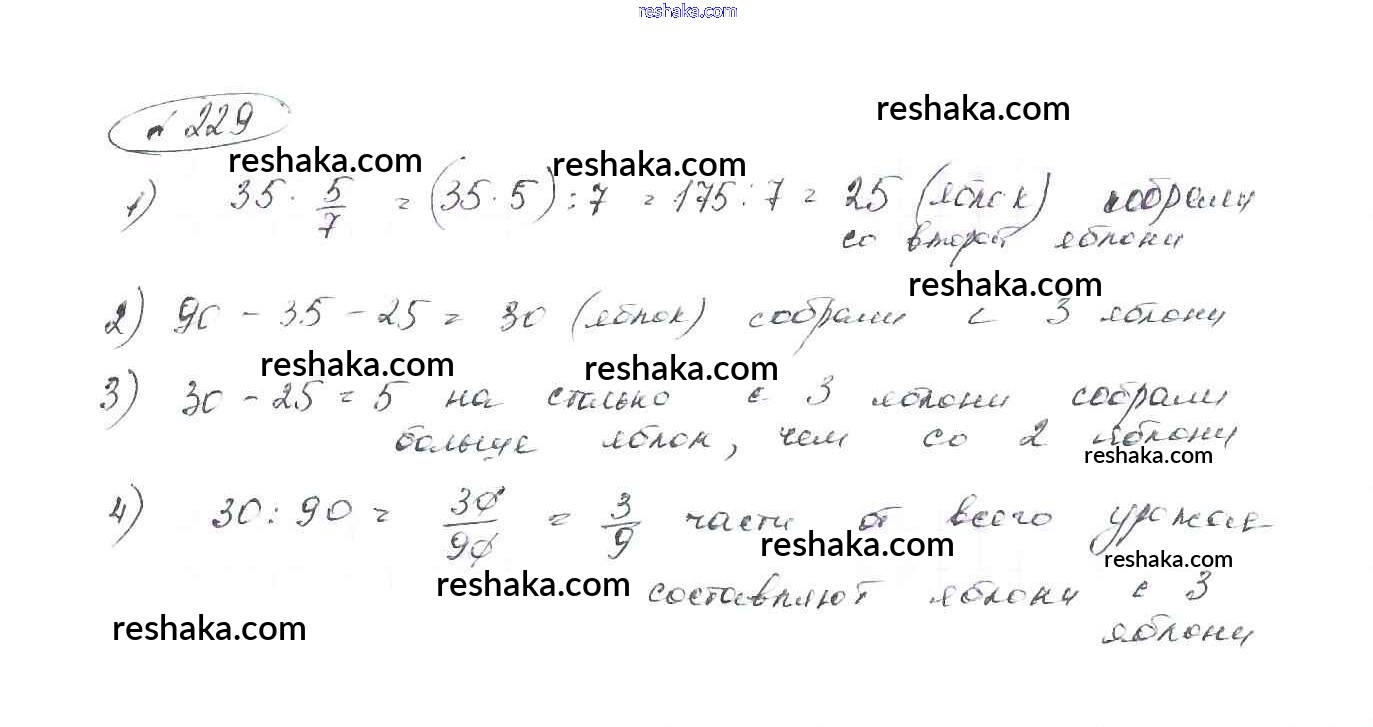 reshaka.com
№ 229
reshaka.com
reshaka.com reshaka.com
1) 35 · 5/7 = (35 · 5) : 7 = 175 : 7 = 25 (яблок) собрали
со второй яблони
reshaka.com
2) 90 - 35 - 25 = 30 (яблок) собрали с 3 яблони
reshaka.com reshaka.com
3) 30 - 25 = 5 на столько с 3 яблони собрали
больше яблок, чем со 2 яблони
reshaka.com
4) 30 : 90 = 30/90 = 3/9 части от всего урожая
reshaka.com reshaka.com
reshaka.com составляют яблони с 3
reshaka.com яблони